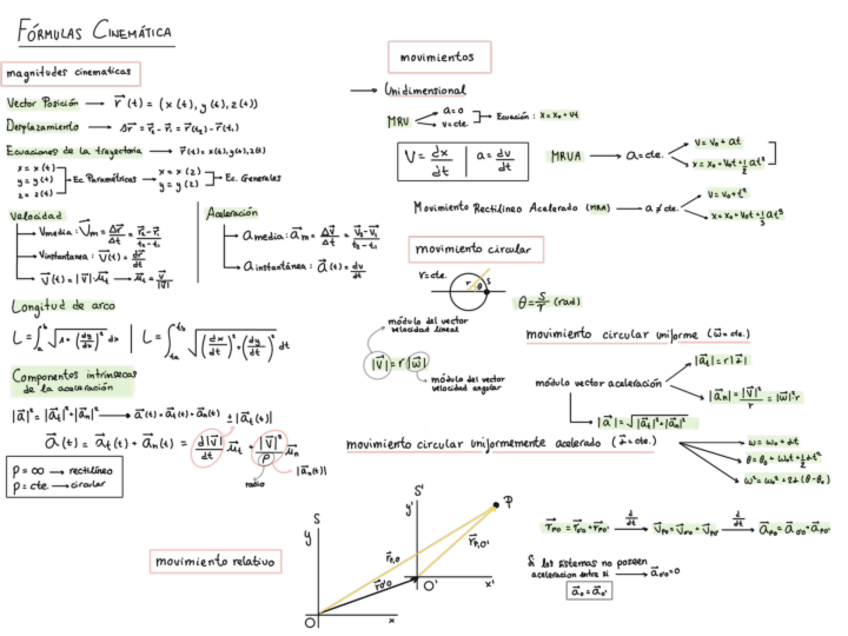 FÓRMULAS CINEMÁTICA
magnitudes cinematicas
Vector Posición → r⃗(t) = (x(t), y(t), z(t))
Desplazamiento → Δr⃗ = r⃗₂ - r⃗₁ = r⃗(t₂) - r⃗(t₁)
Ecuaciones de la trayectoria → r⃗(t) = x(t), y(t), z(t)
x = x(t)
y = y(t)
z = z(t)
Ec. Paramétricas
x = x(z)
y = y(z)
Ec. Generales
Velocidad
Vmedia: V⃗m = Δr⃗/Δt = (r⃗₂ - r⃗₁)/(t₂ - t₁)
Vinstantanea: V⃗(t) = dr⃗/dt
V⃗(t) = |V⃗| · μ⃗t → μ⃗t = V⃗/|V⃗|
Aceleración
a media: a⃗m = ΔV⃗/Δt = (V⃗₂ - V⃗₁)/(t₂ - t₁)
a instantánea: a⃗(t) = dv/dt
Longitud de arco
L = ∫ₐᵇ √(1 + (dy/dx)²) dx | L = ∫ₜₐᵗᵇ √((dx/dt)² + (dy/dt)²) dt
Componentes intrínsecas
de la aceleración
|a⃗|² = |a⃗t|² + |a⃗n|² → a⃗(t) = a⃗t(t) + a⃗n(t)
± |a⃗t(t)|
a⃗(t) = a⃗t(t) + a⃗n(t) = d|V⃗|/dt μ⃗t + |V⃗|²/ρ μ⃗n
radio
|a⃗n(t)|
ρ = ∞ → rectilíneo
ρ = cte. → circular
movimientos
→ Unidimensional
MRU
a = 0
v = cte.
Ecuación: x = x₀ + vt
V = dx/dt | a = dv/dt
MRUA → a = cte.
v = v₀ + at
x = x₀ + v₀t + 1/2 at²
Movimiento Rectilíneo Acelerado (MRA) → a ≠ cte.
v = v₀ + t²
x = x₀ + v₀t + 1/3 at³
movimiento circular
r = cte.
r
θ
s
θ = S/r (rad)
módulo del vector
velocidad lineal
|V⃗| = r |ω⃗|
módulo del vector
velocidad angular
movimiento circular uniforme (ω⃗ = cte.)
módulo vector aceleración
|a⃗t| = r |α⃗|
|a⃗n| = |V⃗|²/r = |ω⃗|² · r
|a⃗| = √(|a⃗t|² + |a⃗n|²)
movimiento circular uniformemente acelerado (α⃗ = cte.)
ω = ω₀ + αt
θ = θ₀ + ω₀t + 1/2 αt²
ω² = ω₀² + 2α(θ - θ₀)
movimiento relativo
S
y
O
x
S'
y'
O'
x'
P
r⃗P,O
r⃗P,O'
r⃗O'O
r⃗PO = r⃗O'O + r⃗PO' → d/dt V⃗PO = V⃗O'O + V⃗PO' → d/dt a⃗PO = a⃗O'O + a⃗PO'
Si los sistemas no poseen
aceleracion entre sí → a⃗O'O = 0
a⃗O = a⃗O'